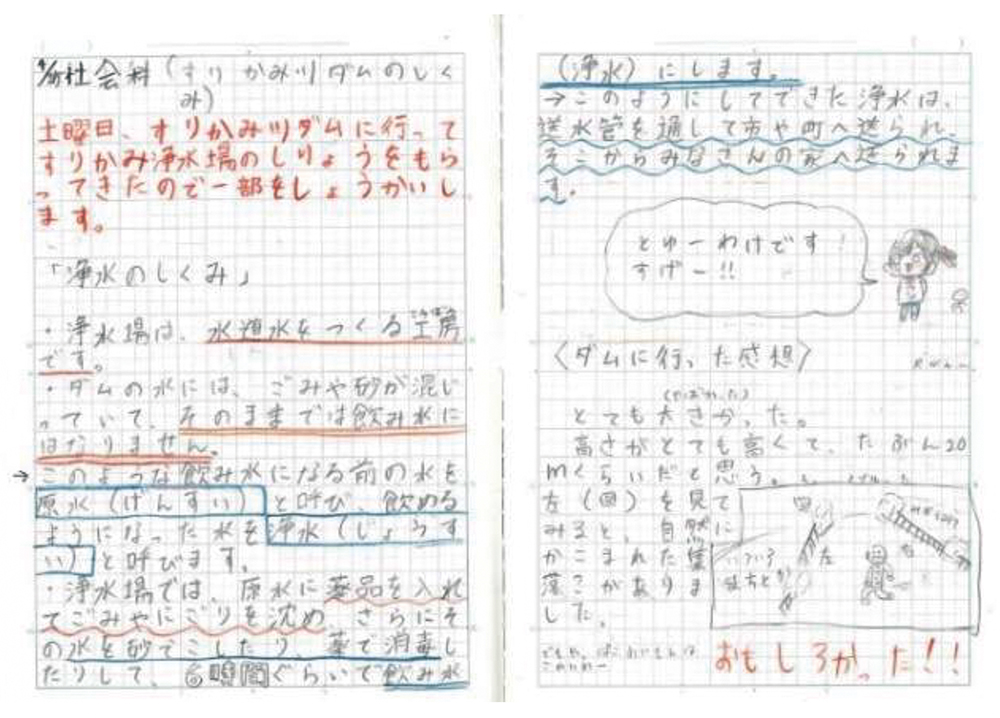 社会科(すりかみ川ダムのしく
み)
土曜日、すりかみ川ダムに行って
すりかみ浄水場のしりょうをもら
ってきたので一部をしょうかいし
ます。
「浄水のしくみ」
・浄水場は、水道水をつくる工房
です。
・ダムの水には、ごみや砂が混じ
っていて、そのままでは飲み水に
はなりません。
→このような飲み水になる前の水を
原水(げんすい)と呼び、飲める
ようになった水を浄水(じょうす
い)と呼びます。
・浄水場では、原水に薬品を入れ
てごみやにごりを沈め、さらにそ
の水を砂でこしたり、薬で消毒し
たりして、6時間ぐらいで飲み水
(浄水)にします。
→このようにしてできた浄水は、
送水管を通して市や町へ送られ、
そこからみなさんの家へ送られま
す。
とゆーわけです!
すげー!!
〈ダムに行った感想〉
とても大きかった。
高さがとても高くて、たぶん20
mくらいだと思う。
左(図)を見て
みると、自然に
かこまれた集
落こがありま
した。
図
左
右
おもしろかった!!